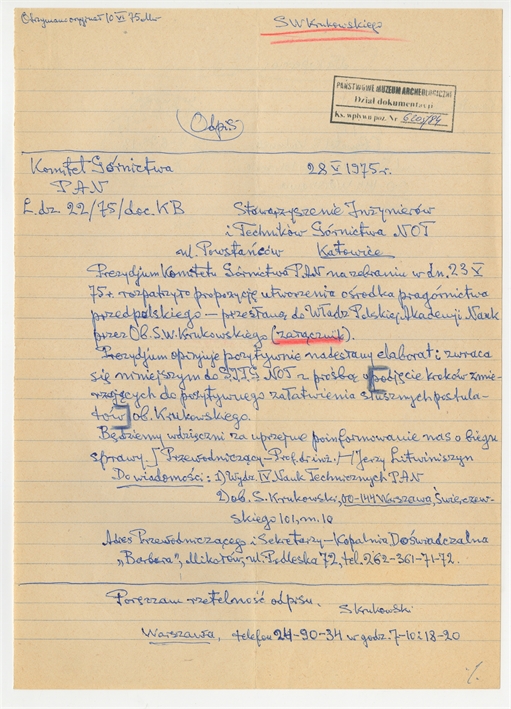 Otrzymano oryginał 10 VI 75
S W Krukowskiego
PAŃSTWOWE MUZEUM ARCHEOLOGICZNE
Dział dokumentacji
Ks. wpływu poz. Nr
Odpis
Komitet Górnictwa
PAN
28 V 1975 r.
L. dz 22/75/doc. KB
Stowarzyszenie Inżynierów
i Techników Górnictwa NOT
ul. Powstańców Katowice
Prezydjum Komitetu Górnictwa PAN na zebraniu w dn. 23 V
75 r. rozpatrzyło propozycję utworzenia ośrodka pragórnictwa
przedpolskiego — przesłaną do Władz Polskiej Akademji Nauk
przez Ob. S. W. Krukowskiego (załącznik).
Prezydjum opinjuje pozytywnie nadesłany elaborat i zwraca
się niniejszym do S.I.T.G NOT z prośbą o podjęcie kroków zmie-
rzających do pozytywnego załatwienia słusznych postula-
tów ob. Krukowskiego.
Będziemy wdzięczni za uprzejme poinformowanie nas o biegu
sprawy. Przewodniczący — Prof. dr inż. /—/ Jerzy Litwiniszyn
Do wiadomości: 1) Wydz. IV Nauk Technicznych PAN
2) ob. S. Krukowski, 00-144 Warszawa, Świerczew-
skiego 101, m. 10
Adres Przewodniczącego i Sekretarzy — Kopalnia Doświadczalna
„Barbara", Mikołów, ul. Podleska 72, tel. 262-361-71-72.
Poręczam rzetelność odpisu. S Krukowski
Warszawa, telefon 24-90-34 w godz. 7-10 i 18-20